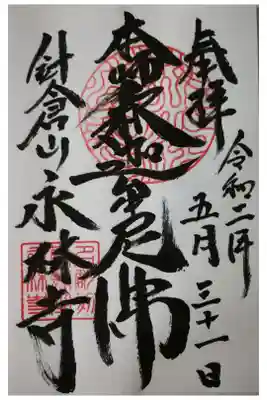 奉拝
令和二年
五月三十一日
本師釈迦牟尼佛
針倉山永林寺